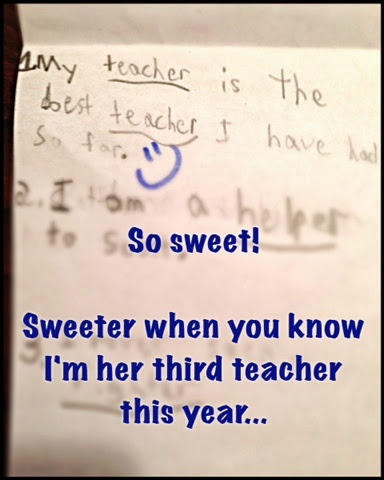 1. My teacher is the
best teacher I have had
so far.
2. I am a helper
to
So sweet!
Sweeter when you know
I'm her third teacher
this year...